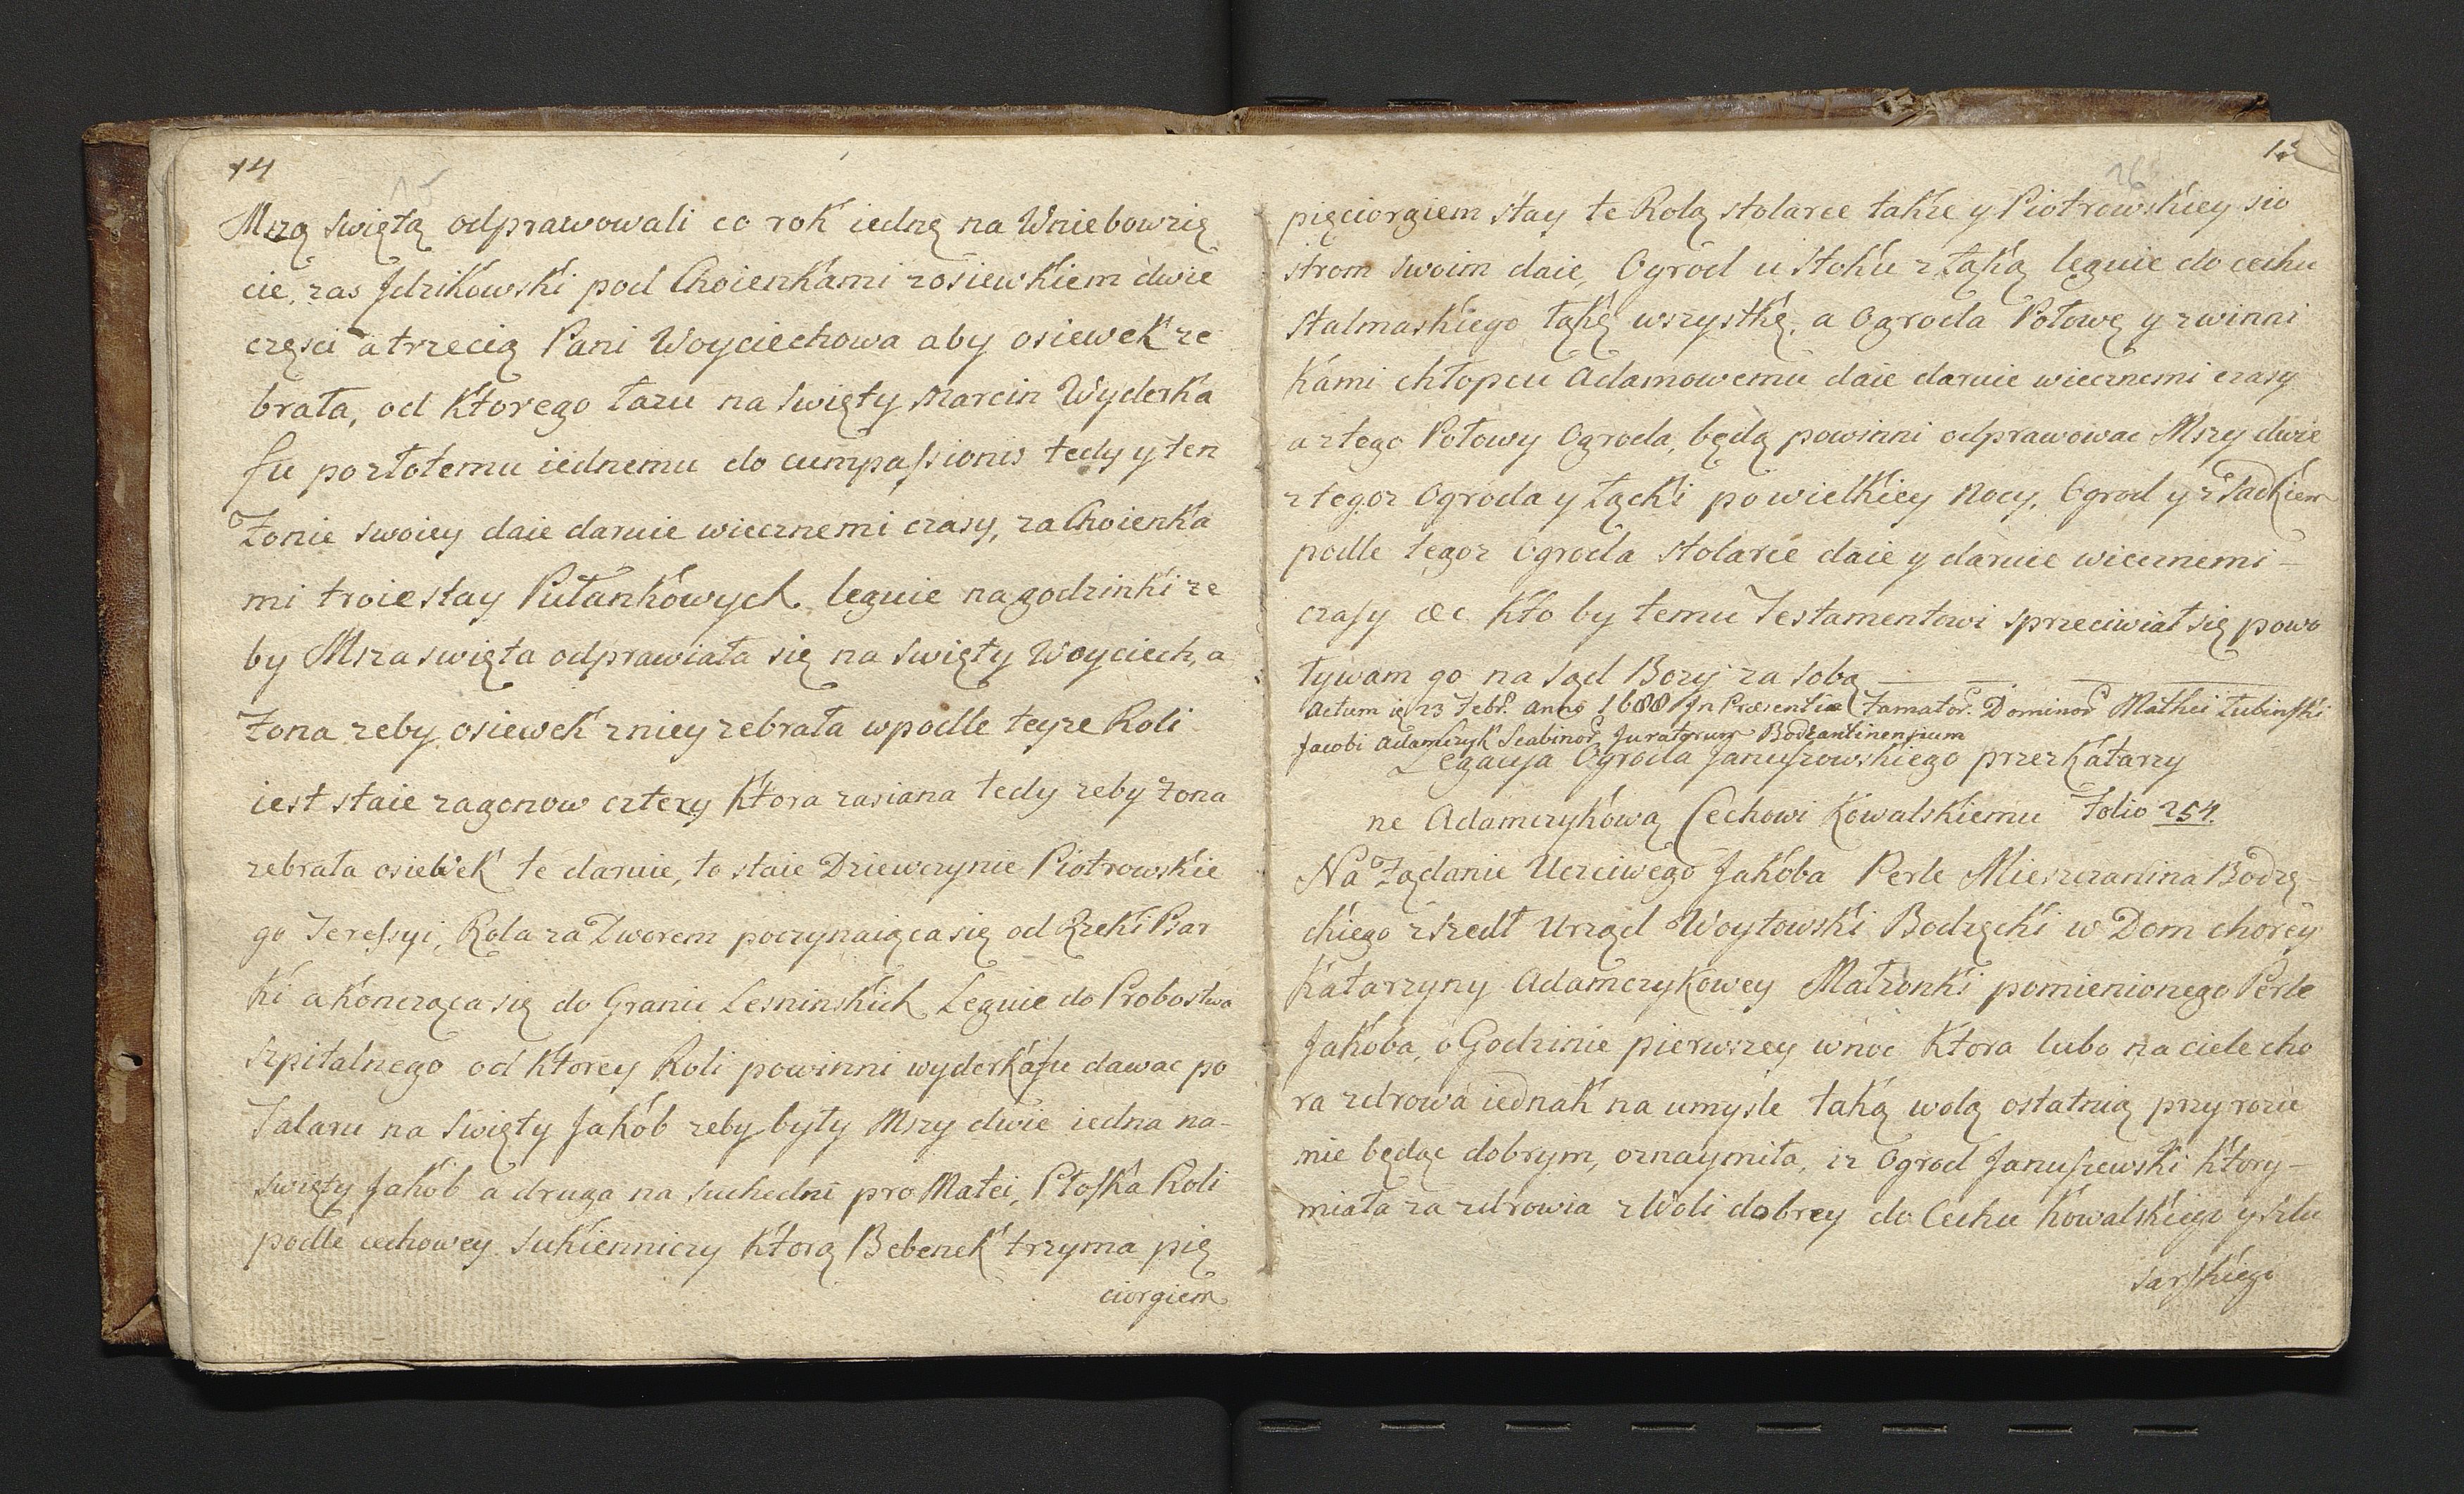 14
15
Mszą Swiętą odprawowali co rok iednę na Wniebowzię
cie, zas Jdzikowski pod Choienkami zosiewkiem dwie
częsci a trzecią Pani Woyciechowa aby osiewek ze
brała, od Ktorego łazu na Swięty Marcin Wyderka
fu po złotemu iednemu do cumpassionis tedy y ten
Zonie swoiey daie daruie wiecznemi czasy, za Choienka
mi troie stay Pułankowych leguie na godzinki ze
by Msza swięta odprawiała się na Swięty Woyciech, a
Zona zeby osiewek zniey zebrała wpodle teyze Roli
iest staie zagonow cztery Ktora zasiana tedy zeby Zona
zebrała osiewek te daruie, to staie Dziewczynie Piotrowskie
go Teressyi, Rola za Dworem poczynaiąca się od Rzeki Psar
ki a Koncząca się do Granic Lesninskich Leguie do Probostwa
Szpitalnego od Ktorey Roli powinni wyderkafu dawac po
Talaru na Swięty Jakób zeby były Mszy dwie iedna na-
Swięty Jakób a druga na suchedni pro Matei, Płoska Roli
podle cechowey Sukienniczy Ktorą Bebenek trzyma pię
ciorgiem
16
pięciorgiem stay te Rolą stolarce także y Piotrowskiey sio
strom swoim daie, Ogród u Stoku z Łąką leguie do cechu
Stalmaskiego Łąkę wszystkę, a Ogroda Połowę y zwinni
kami chłopcu Adamowemu daie daruie wiecznemi czasy
a ztego Połowy Ogroda, będą powinni odprawowac Mszy dwie
z tegoz Ogroda y Łącki po wielkiey Nocy, Ogrod y z Sadkiem
podle tegoz Ogroda stolarce daie y daruie wiecznemi -
czasy &c Kto by temu Testamentowi sprzeciwiał się powo
ływam go na Sąd Bozy za sobą
Actum 23 Febr. anno 1688 Jn Præsentia Famator. Dominor Mathei Łubinski
Jacobi Adamczyk Scabinor Juratorum Bodzantinensium
Legacyja Ogroda Januszowskiego przez Katarzy
ne Adamczykową Cechowi Kowalskiemu Folio 254.
Na Ządanie Uczciwego Jakoba Perle Mieszczanina Bodzę
ckiego zszedł Urząd Woytowski Bodzęcki w Dom chorey
Katarzyny Adamczykowey Małzonki pomienionego Perle
Jakoba, o Godzinie pierwszey wnoc Ktora lubo na ciele cho
ra zdrowa iednak na umysle taką wolą ostatnią przy rozu
mie będąc dobrym, oznaymiła, iz Ogrod Januszewski Ktory-
miała za zdrowia z Woli dobrey do Cechu Kowalskiego y szlu
sarskiego